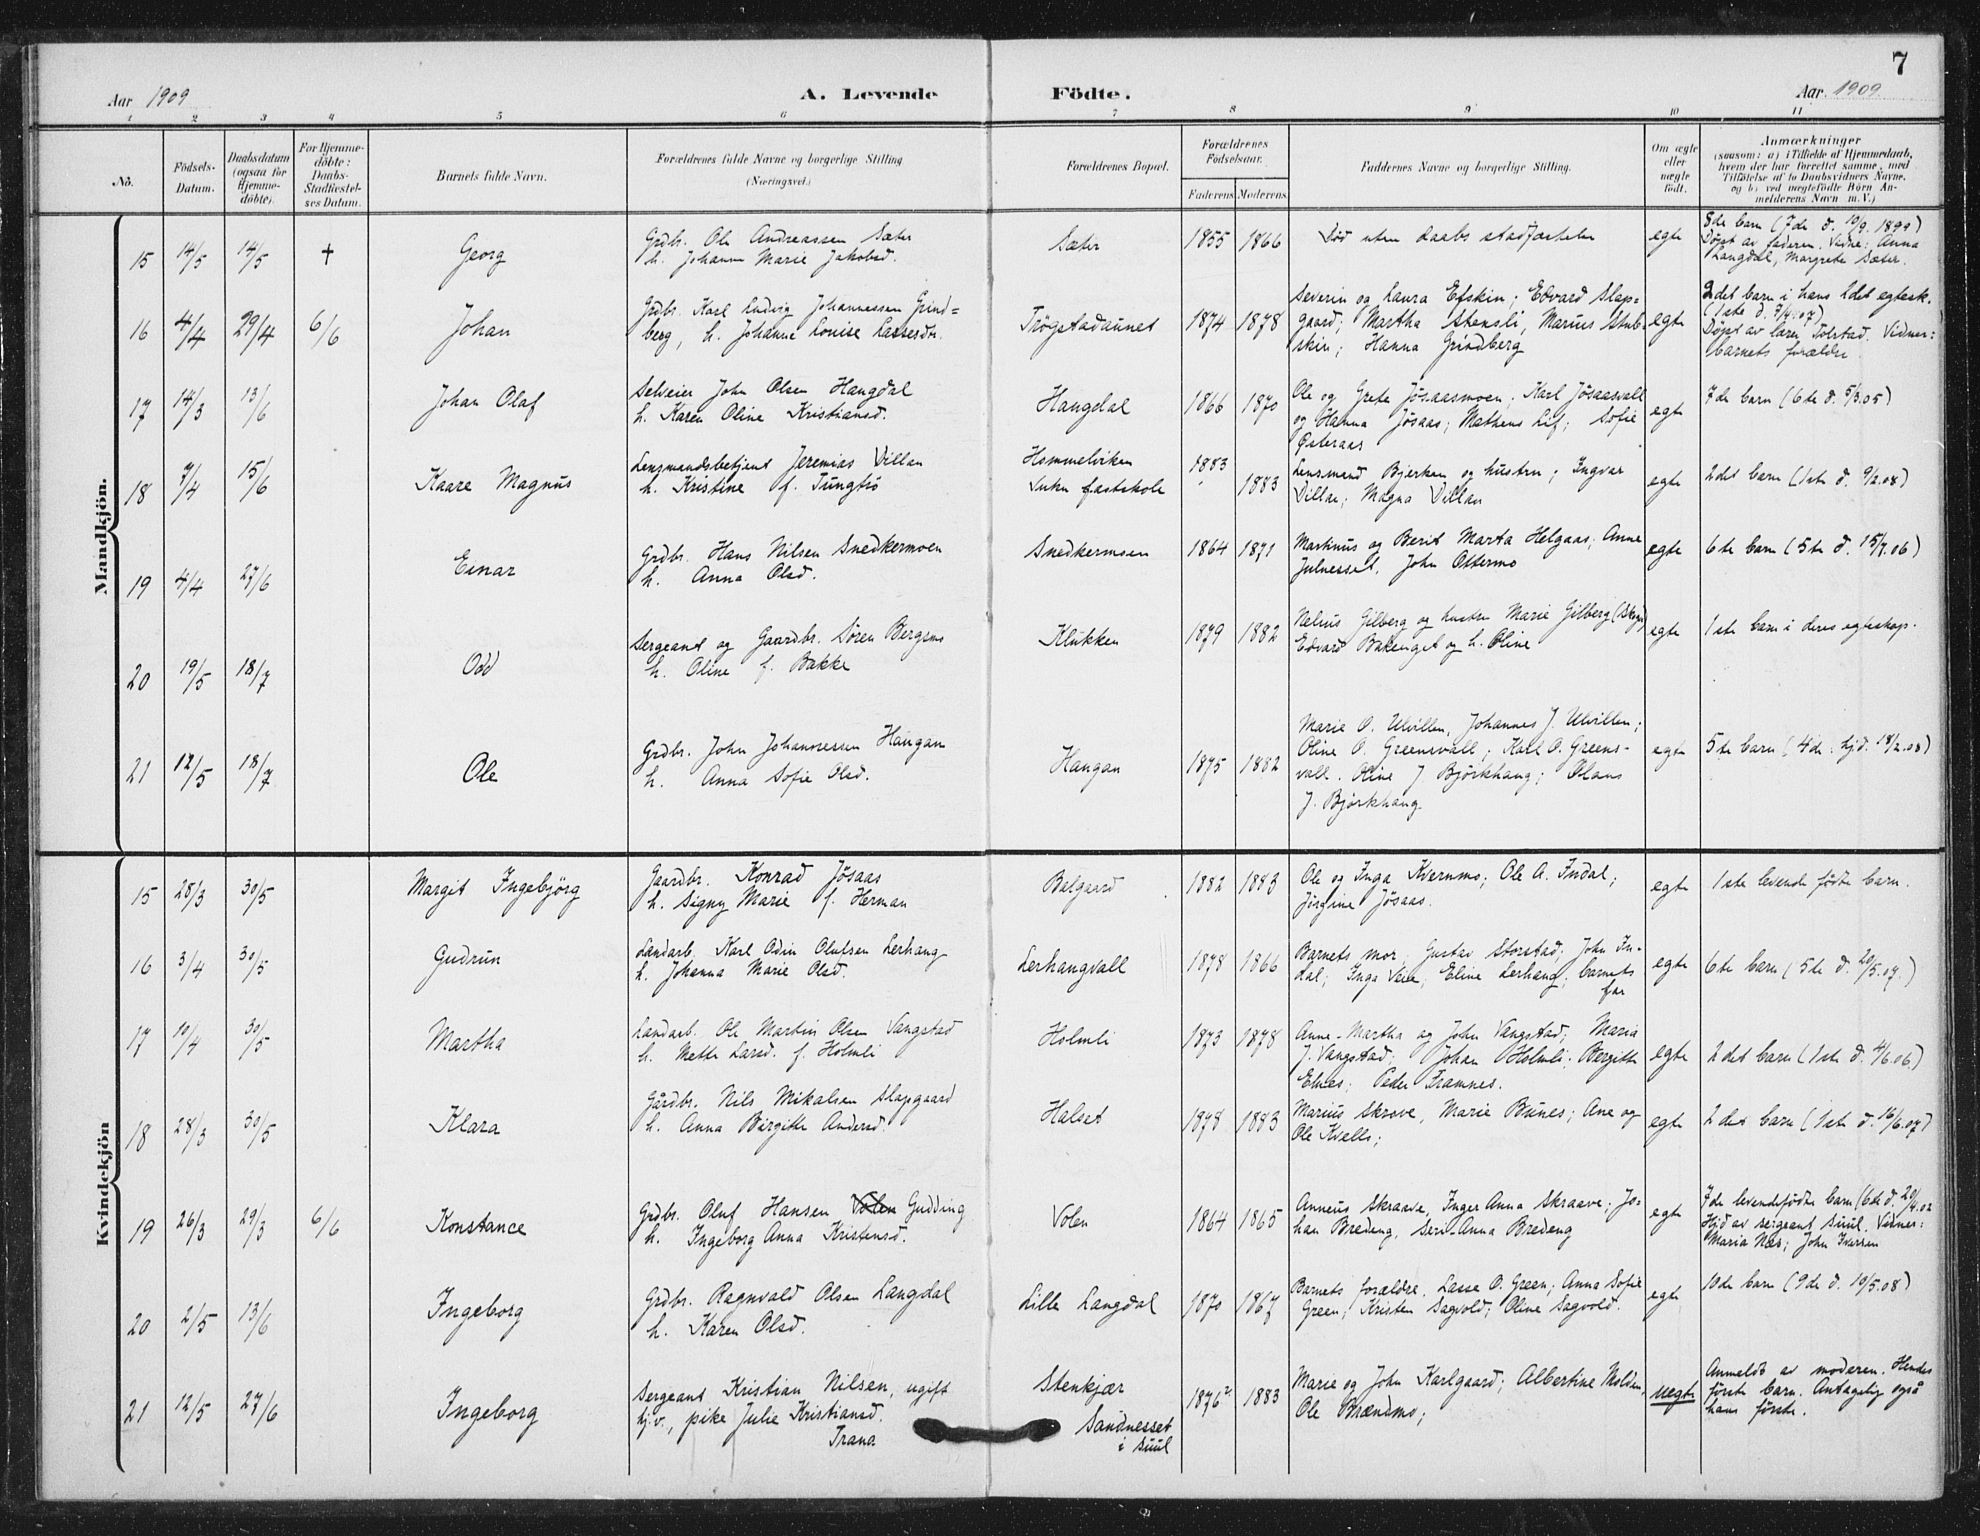 7
Aar 1909
A. Levende Födte.
Aar 1909
1 2 3 4 5 6 7 8 9 10 11
No.
Födsels-Datum.
Daabsdatum (ogsaa for Hjemme-döbte).
For Hjemme-döbte: Daabs-Stadfæstel-ses Datum.
Barnets fulde Navn.
Forældrenes fulde Navne og borgerlige Stilling (Næringsvei.)
Forældrenes Bopæl.
Forældrenes Födselsaar.
Faderens Moderens
Faddernes Navne og borgerlige Stilling.
Om ægte eller uægte födt.
Anmærkninger
(saasom: a) i Tilfælde af Hjemmedaab,
hvem der har forrettet samme, med
Tilföielse af to Daabsvidners Navne,
og b) ved uægtefödte Börn An-
melderens Navn m. V.)
Mandkjön.
15 14/5 14/5 † Georg
Grdbr. Ole Andreassen Sæter
h. Johanna Marie Jakobsd.
Sæter 1855 1866
Död uten daabs stadfæstelse
egte
8de barn (7de d. 10/9. 1899)
Døpt av faderen. Vidne: Anna
Langdal, Margrete Sæter.
16 4/4 29/4 6/6 Johan
Grdbr. Karl Ludvig Johannessen Grind=
berg, h. Johanne Louise Lassesdtr.
Trögstadaunet 1874 1878
Severin og Laura Efskin; Edvard Slap=
gaard; Martha Stensli, Marius Stub-
skin; Hanna Grindberg
egte
2det barn i hans 2det egtesk.
(1ste d. 7/4.07)
Døpt av lærer Tolstad. Vidner:
barnets forældre
17 14/3 13/6 Johan Olaf
Selveier John Olsen Haugdal
h. Karen Oline Kristiansd.
Haugdal 1866 1870
Ole og Grete Jösaasmoen, Karl Jösaasvall
og Hanna Jösaas; Mathens Lif; Sofie
Østeraas
egte
7de barn (6te d. 5/3.05)
18 7/4 15/6 Kaare Magnus
Lensmandsbetjent Jeremias Villan
h. Kristine f. Tungtrö
Hommelviken
Inhr fastskole
1883 1883
Lensmand Bjerken og hustru; Ingvar
Villan; Magna Villan
egte
2det barn (1ste d. 9/2.08)
19 4/4 27/6 Einar
Grdbr. Hans Nilsen Snedkermoen
h. Anna Olsd.
Snedkermoen 1864 1871
Markinus og Berit Marta Helgaas; Anne
Julnesset, John Ottermo
egte
6te barn (5te d. 15/7.06)
20 19/5 18/7 Odd
Sergeant og Gaardbr. Sören Bergsmo
h. Oline f. Bakke
Klukken 1879 1882
Nelius Gilberg og hustru Marie Gilberg (Skogn)
Edvard Bakenget og h. Oline
egte
1ste barn i deres egteskap.
21 12/5 18/7 Ole
Grdbr. John Johannessen Haugan
h. Anna Sofie Olsd.
Haugan 1875 1882
Marie O. Ulvillen, Johannes J. Ulvillen;
Oline O. Greensvall; Karl O. Greens-
vall. Oline J Björkhaug; Olaus
J. Björkhaug
egte
5te barn (4de: hjd. 18/2.08)
Kvindekjön
15 28/3 30/5 Margit Ingebjörg
Gaardbr. Konrad Jösaas
h. Signy Marie f. Herman
Balgaard 1882 1883
Ole og Inga Kvernmo; Ole A. Indal;
Jörgine Jösaas.
egte
1ste levende födte barn.
16 3/4 30/5 Gudrun
Landarb. Karl Odin Olutsen Lerhaug
h. Johanna Marie Olsd.
Lerhaugvall 1878 1866
Barnets mor, Gustav Storstad; John In-
dal; Inga Vera; Eline Lerhaug; barnets
far
egte
6te barn (5te d. 20/5.07.)
17 10/4 30/5 Martha
Landarb. Ole Martin Olsen Vangstad
h. Mette Larsd. f. Holmli
Holmli 1873 1878
Anne-Martha og John Vangstad; Maria
J. Vangstad; Johan Holmli. Bergitte
Elnes; Peder Framnes.
egte
2det barn (1ste d. 4/6.06.)
18 28/3 30/5 Klara
Gårdbr. Nils Mikalsen Slapgaard
h. Anna Birgitte Andersd.
Halset 1878 1883
Marius Skrove, Marie Bunes; Ane og
Ole Kvelle;
egte
2det barn (1ste d. 16/6.07)
19 26/3 29/3 6/6 Konstance
Grdbr. Oluf Hansen Volen Gudding
h. Ingeborg Anna Kristensd.
Volen 1864 1865
Anneus Skraave, Inger Anna Skraave; Jo-
han Bredeng, Seri-Anna Bredeng
egte
7de levendefödte barn (6te d. 20/4.02
Hjd av sergeant Suul. Vidner:
Maria Næs; John Iversen
20 2/5 13/6 Ingeborg
Grdbr. Ragnvald Olsen Langdal
h. Karen Olsd.
Lille Langdal 1870 1867
Barnets forældre, Lasse O. Green; Anna Sofie
Green; Kristen Sagvold; Oline Sagvold.
egte
10de barn (9de d. 10/5.08)
21 12/5 27/6 Ingeborg
Sergeant Kristian Nilsen, ugift
tj.v., pike Julie Kristiansd.
Trana
Stenkjær
Sandnesset
i Suul
1876 1883
Marie og John Karlgaard; Albertine Molden,
Ole Brændmo;
uegte
Anmeldt av moderen. Hendes
første barn. Antagelig også
hans første.